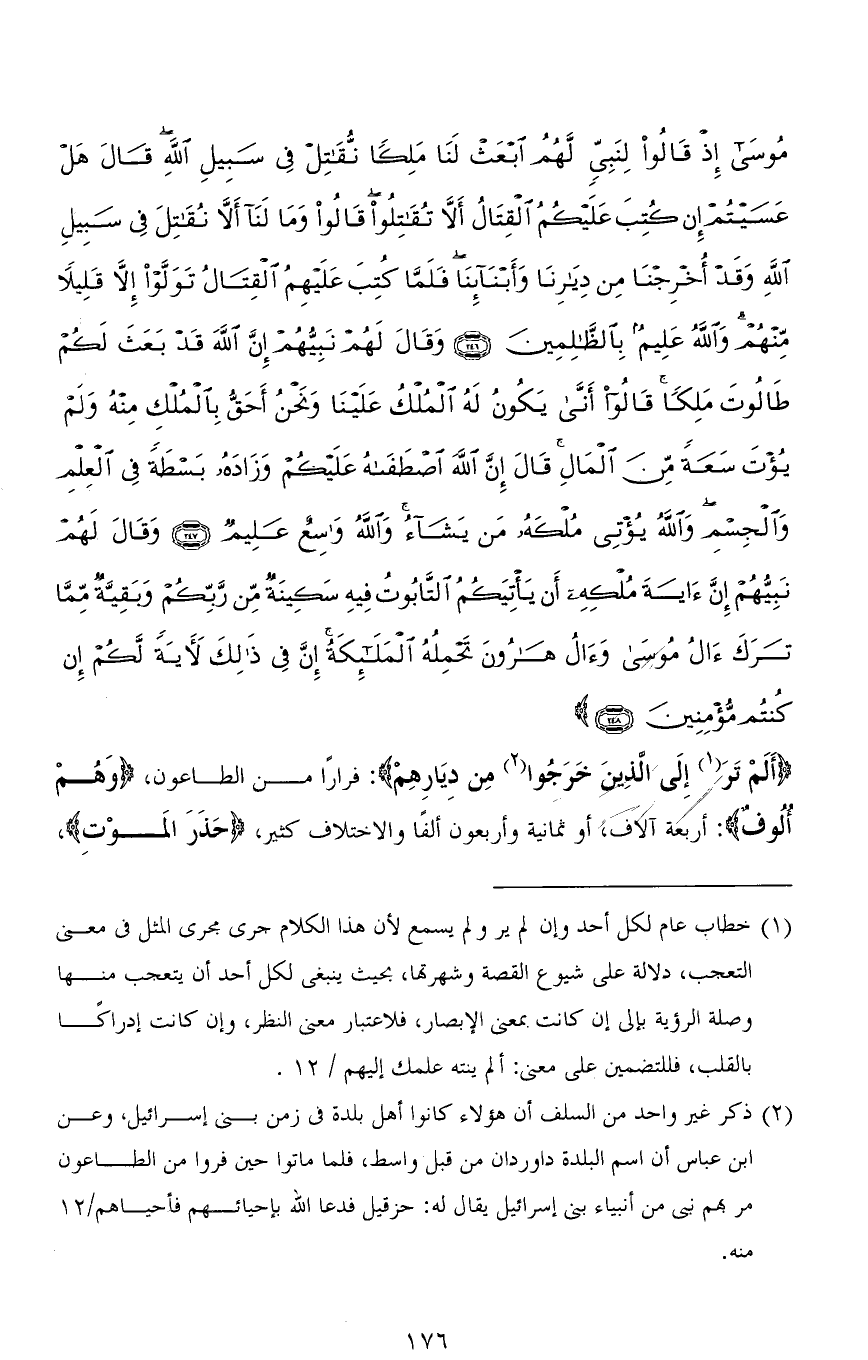 مُوسَىٰٓ إِذۡ قَالُواْ لِنَبِيّٖ لَّهُمُ ٱبۡعَثۡ لَنَا مَلِكٗا نُّقَٰتِلۡ فِي سَبِيلِ ٱللَّهِۖ قَالَ هَلۡ
عَسَيۡتُمۡ إِن كُتِبَ عَلَيۡكُمُ ٱلۡقِتَالُ أَلَّا تُقَٰتِلُواْۖ قَالُواْ وَمَا لَنَآ أَلَّا نُقَٰتِلَ فِي سَبِيلِ
ٱللَّهِ وَقَدۡ أُخۡرِجۡنَا مِن دِيَٰرِنَا وَأَبۡنَآئِنَاۖ فَلَمَّا كُتِبَ عَلَيۡهِمُ ٱلۡقِتَالُ تَوَلَّوۡاْ إِلَّا قَلِيلٗا
مِّنۡهُمۡۚ وَٱللَّهُ عَلِيمُۢ بِٱلظَّٰلِمِينَ ٢٤٦ وَقَالَ لَهُمۡ نَبِيُّهُمۡ إِنَّ ٱللَّهَ قَدۡ بَعَثَ لَكُمۡ
طَالُوتَ مَلِكٗاۚ قَالُوٓاْ أَنَّىٰ يَكُونُ لَهُ ٱلۡمُلۡكُ عَلَيۡنَا وَنَحۡنُ أَحَقُّ بِٱلۡمُلۡكِ مِنۡهُ وَلَمۡ
يُؤۡتَ سَعَةٗ مِّنَ ٱلۡمَالِۚ قَالَ إِنَّ ٱللَّهَ ٱصۡطَفَىٰهُ عَلَيۡكُمۡ وَزَادَهُۥ بَسۡطَةٗ فِي ٱلۡعِلۡمِ
وَٱلۡجِسۡمِۖ وَٱللَّهُ يُؤۡتِي مُلۡكَهُۥ مَن يَشَآءُۚ وَٱللَّهُ وَٰسِعٌ عَلِيمٞ ٢٤٧ وَقَالَ لَهُمۡ
نَبِيُّهُمۡ إِنَّ ءَايَةَ مُلۡكِهِۦٓ أَن يَأۡتِيَكُمُ ٱلتَّابُوتُ فِيهِ سَكِينَةٞ مِّن رَّبِّكُمۡ وَبَقِيَّةٞ مِّمَّا
تَرَكَ ءَالُ مُوسَىٰ وَءَالُ هَٰرُونَ تَحۡمِلُهُ ٱلۡمَلَٰٓئِكَةُۚ إِنَّ فِي ذَٰلِكَ لَأٓيَةٗ لَّكُمۡ إِن
كُنتُم مُّؤۡمِنِينَ ٢٤٨ ﴾
﴿أَلَمْ تَرَ(١) إِلَى الَّذِينَ خَرَجُوا(٢) مِن دِيَارِهِمْ﴾: فرارًا مـن الطـاعون، ﴿وَهُـمْ
أُلُوفٌ﴾: أربعة آلاف، أو ثمانية وأربعون ألفًا والاختلاف كثير، ﴿حَذَرَ المَـوْتِ﴾،
(١) خطاب عام لكل أحد وإن لم ير ولم يسمع لأن هذا الكلام جرى مجرى المثل فى معنى
التعجب، دلالة على شيوع القصة وشهرتها، بحيث ينبغى لكل أحد أن يتعجب منها
وصلة الرؤية بإلى إن كانت بمعنى الإبصار، فلاعتبار معنى النظر، وإن كانت إدراكًا
بالقلب، فللتضمين على معنى: ألم ينته علمك إليهم / ١٢ .
(٢) ذكر غير واحد من السلف أن هؤلاء كانوا أهل بلدة فى زمن بنى إسرائيل، وعن
ابن عباس أن اسم البلدة داوردان من قبل واسط، فلما ماتوا حين فروا من الطاعون
مر بهم نبى من أنبياء بنى إسرائيل يقال له: حزقيل فدعا الله بإحيائهم فأحياهم/١٢
منه.
١٧٦